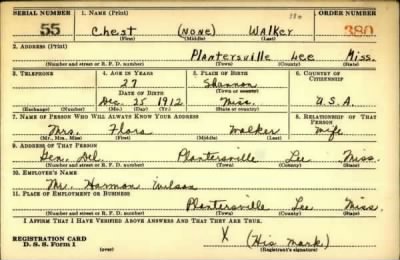 SERIAL NUMBER 1. NAME (Print) ORDER NUMBER
55 Chest (NONE) Walker 380
(First) (Middle) (Last)
2. ADDRESS (Print)
Plantersville Lee Miss.
(Number and street or R. F. D. number) (Town) (County) (State)
3. TELEPHONE 4. AGE IN YEARS 5. PLACE OF BIRTH 6. COUNTRY OF CITIZENSHIP
27 Shannon
DATE OF BIRTH (Town or county)
Dec. 25 1912 Miss. U.S.A.
(Exchange) (Number) (Mo.) (Day) (Yr.) (State or country)
7. NAME OF PERSON WHO WILL ALWAYS KNOW YOUR ADDRESS 8. RELATIONSHIP OF THAT PERSON
Mrs. Flora Walker Wife
(Mr., Mrs., Miss) (First) (Middle) (Last)
9. ADDRESS OF THAT PERSON
Gen. Del. Plantersville Lee Miss.
(Number and street or R. F. D. number) (Town) (County) (State)
10. EMPLOYER'S NAME
Mr. Harmon Wilson
11. PLACE OF EMPLOYMENT OR BUSINESS
Plantersville Lee Miss.
(Number and street or R. F. D. number) (Town) (County) (State)
I AFFIRM THAT I HAVE VERIFIED ABOVE ANSWERS AND THAT THEY ARE TRUE.
REGISTRATION CARD
D. S. S. Form 1 (over) X (His mark)
(Registrant's signature)